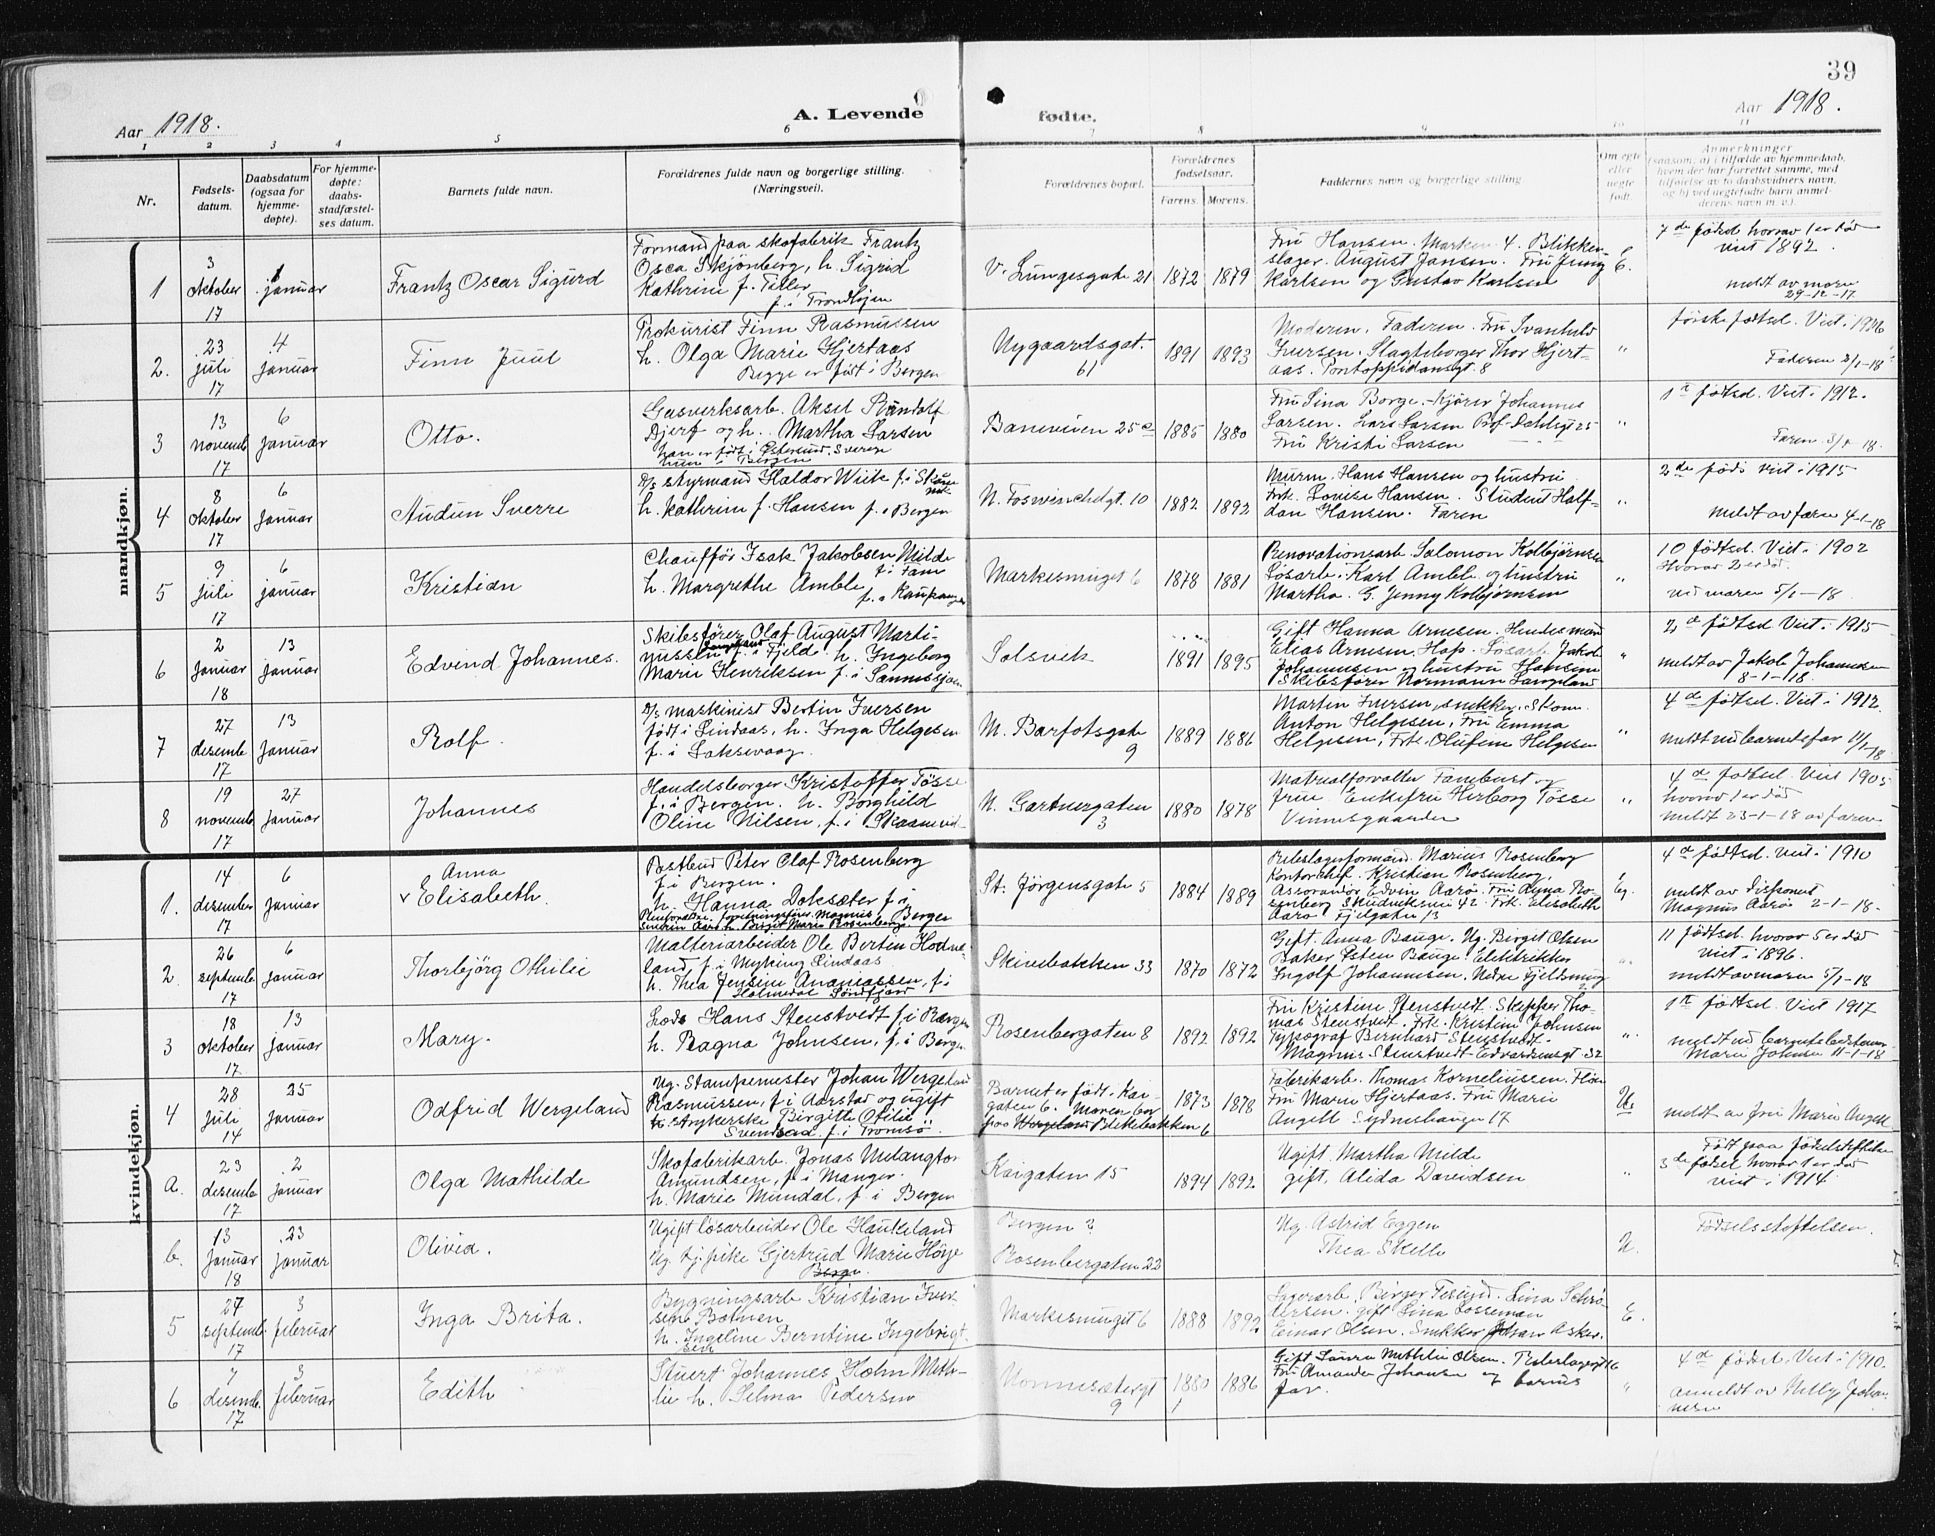 39
Aar 1918.
A. Levende
fødte.
Aar 1918.
1 2 3 4 5 6 7 8 9 10 11
Nr.
Fødsels-
datum.
Daabsdatum
(ogsaa for
hjemme-
døpte).
For hjemme-
døpte:
daabs-
stadfæstel-
ses datum.
Barnets fulde navn.
Forældrenes fulde navn og borgerlige stilling.
(Næringsvei).
Forældrenes bopæl.
Forældrenes
fødselsaar.
Farens.
Morens.
Faddernes navn og borgerlige stilling.
Om egte
eller
uegte
født.
Anmerkninger
(saasom: a) i tilfælde av hjemmedaab,
hvem der har forrettet samme, med
tilføielse av to daabsvidners navn,
og b) ved uegtefødte barn anmel-
derens navn m. v.).
mandkjøn.
1
3 oktober 17
1 januar
Frantz Oscar Sigurd
Formand paa skofabrik Frantz
Osca Skjönberg, h. Sigrid
Kathrine f. Tiller
f. i Trondhjem
V. Lungesgate 21
1872 1879
Fru Hansen. Marken 4. Blikken-
slager. August Jansen. Fru Jenny
Karlsen og Gustav Karlsen
E.
7de fødsel hvorav 1 er död
viet 1892.
meldt av moren
29-12-17.
2.
23 juli 17
4 januar
Finn Juul
Prokurist Finn Rasmussen
h. Olga Marie Hjertaas
Begge er født i Bergen
Nygaardsgat.
61
1891 1893
Moderen. Faderen. Fru Svanhild
Iversen. Slagteborger Thor Hjert-
aas. Pontoppidansgt. 8
"
første fødsel. Viet i 1916
Faderen 2/1-18
3
13 novemb 17
6 januar
Otto.
Gasverksarb. Aksel Randolf
Djerf og h. Martha Larsen
han er født i Østersund, Sverige
hun i Bergen
Baneveien 25 a
1885 1880
Fru Sina Borge. Kjører Johannes
Larsen. Lars Larsen Prof. Dahlsgt 25
Fru Kristi Larsen
"
1ste fødsel. Viet i 1912.
Faren 5/1-18.
4
8 oktober 17
6 januar
Audun Sverre
D/S styrmand Haldor Wiik f. i
h. Kathrine f. Hansen f. i Bergen
N. Fosswinckelgt. 10
1882 1892
Murm. Hans Hansen og hustru
Frk. Louise Hansen. Student Half-
dan Hansen. Faren
"
2de føds viet i 1915
Meldt av faren 4-1-18
5
9 juli 17
6 januar
Kristian
Chauffør Isak Jakobsen Milde
f. i Fane
h. Margrethe Amble
f. i Kaupanger
Markesmuget 6
1878 1881
Renovationsarb. Salomon Kolbjørnsen
Løsarb. Karl Amble og hustru
Martha. G. Jenny Kolbjørnsen
"
10 fødsel. Viet i 1902
hvorav 2 er död.
ved moren 5/1-18.
6
2 januar 18
13 januar
Edvind Johannes.
Skibsfører Olaf August Marti-
nussen Langeland f. i Fjeld. h. Ingeborg
Marie Henriksen f. i Sannessjøen
Solsvik
1891 1895
Gift Hanna Arnesen. Hendes man
Elias Arnesen, Hop. Løsarb Jakob
Johannesen og hustru Hansine
Skibsfører Normann Langeland
"
2de fødsel Viet i 1915
meldt av Jakob Johannesen
8-1-18.
7
27 desemb 17
13 januar
Rolf.
D/S maskinist Bertin Iversen
født i Lindaas, h. Inga Helgesen
f. i Laksevaag.
N. Barfotsgate
9
1889 1886
Martin Iversen, snekker. Skom.
Anton Helgesen, Fru Emma
Helgesen, Frk. Olufine Helgesen
"
4de fødsel. Viet i 1912.
meldt ved barnets far 11/1-18
8
19 novemb 17
27 januar
Johannes
Handelsborger Kristoffer Tøsse
f. i Bergen. h. Borghild
Oline Nilsen, f. i Skaanevik
N. Gartnergaten
3
1880 1878
Matrialforvalter Fanebust og
frue. Enkefru Herborg Tøsse
Vinnesgaarden
"
4de fødsel. Viet 1905
hvorav 1 er död
meldt 23-1-18 av faren
kvindekjøn.
1.
14 desember 17
6 januar
Anna
v Elisabeth.
Postbud Peter Olaf Rosenberg
f. i Bergen.
h. Hanna Doksæter f. i
Bergen
St. Jørgensgate 5
1884 1889
Rebslagerformand. Marius Rosenberg
Kontorchef. Kristian Rosenberg.
Assurandør Edvin Aarø. Fru Ro-
senberg 42. Frk. Elisabeth
Aarø Fjelgaten 13
Eg.
4de fødsel. Viet i 1910
meldt av disponent
Magnus Aarø 2-1-18.
2.
26 septemb 17
6 januar
Thorbjörg Othilie
Malteriarbeider Ole Bertin Hodne-
land f. i Myking Lindaas
h. Thea Jensine Ananiassen, f. i
Holmedal Söndfjord
Skivebakken 33
1870 1872
Gift. Anna Bauge. Ug. Birgit Olsen
Baker Peten Bauge. Elektriker
Ingolf Johannesen. Nedre Fjeldsmug
2
"
11 fødsel hvorav 5 er död
viet i 1896.
meldt av moren 5/1-18
3
18 oktober 17
13 januar
Mary.
Lods Hans Stenstvedt f. i Bergen
h. Ragna Johnsen, f. i Bergen
Rosenbergaten 8
1892 1892
Fru Kristine Stenstvedt. Skipper Tho-
mas Stenstvedt. Frk. Kristine Johnsen
Typograf Bernhard Stenstvedt.
Magnus Stenstvedt Edvardsensgt 32
"
1ste fødsel. Viet 1917
meldt ved barnets bestemor
Marie Johnsen 11-1-18
4
28 juli 14
25 januar
Odfrid Wergeland
Ug. Stampemester Johan Wergeland
Rasmussen, f. i Aarstad og ugift
strykerske Birgitte Otilie
Svendsad. f. i Tromsö.
Barnet er født i Kai-
gaten 6. Moren bor
paa Blekebakken 6
1873 1878
Fabrikarb. Thomas Korneliussen.
Fru Marie Hjertaas. Fru Marie
Angell Sydneshaugen 17
U.
meldt av fru Marie Angell
a.
23 desemb 17
2 januar
Olga Mathilde
Skofabrikarb. Jonas Melangton
Amundsen, f. i Manger
h. Marie Mundal, f. i Bergen
Kaigaten 15
1894 1892
Ugift. Martha Milde
gift. Alida Davidsen
"
Født paa fødselstiftelsen
3de fødsel hvorav 1 er död
viet i 1914
b.
13 januar 18
23 januar
Olivia.
Ugift løsarbeider Ole Haukeland
Ug. tj. pike Gjertrud Marie Höye
Bergen ?
Rosenbergaten 22
Ug. Astrid Eggen
Thea Skelle
U.
Fødselsstiftelsen.
5
27 septemb 17
3 februar
Inga Brita.
Bygningsarb Kristian Iver-
sen Botnen
h. Ingeline Berntine Ingebrigt-
sen
Markesmuget 6
1888 1892
Lagerarb. Birger Tesund. Lina Schrö-
dersen. gift Lina Losseman
Einar Olsen. Snekker Johan Asker.
E.
6
7 desemb. 17
3 februar
Edith
Stuert Johannes Holm Meth-
lie h. Selma Pedersen
Nonnesætergt
9
1880 1886
Gift Laura Mathilde Olsen. Rebslagergt 16
Fru Amanda Johansen og barnets
far.
"
4de fødsel. Viet i 1910.
anmeldt av Nelly Johan-
nesen